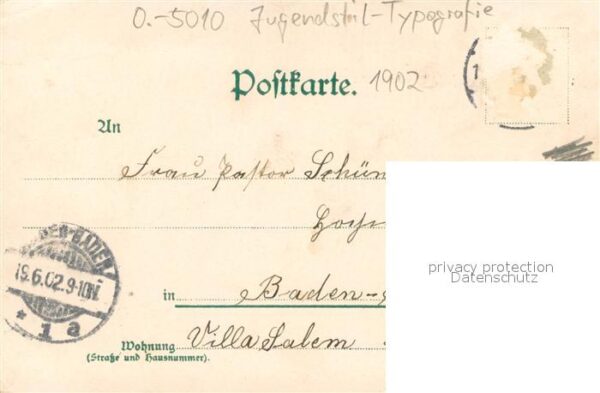 0.-5010 Jugendstil-Typografie
Postkarte. 1902
An
Frau Pastor Schün
privacy protection
Datenschutz
19.6.02.9-10N.
in Baden-
* 1 a
Wohnung Villa Salem
(Straße und Hausnummer).